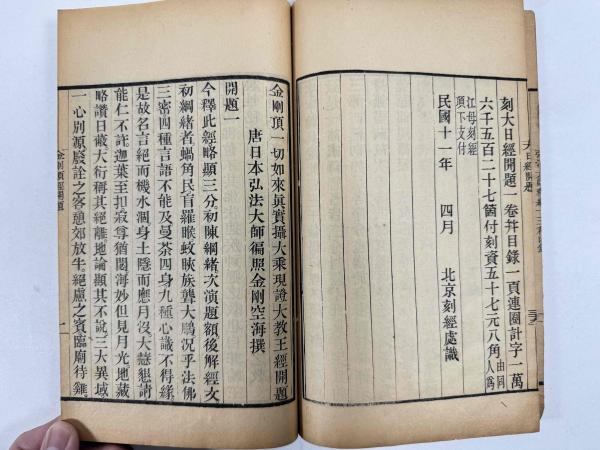 刻大日經開題一卷幷目錄一頁連圈計字一萬
六千五百二十七箇付刻資五十七元八角由同人爲
江母刻經
項下支付
民國十一年 四月 北京刻經處識
大日經開題
金剛頂一切如來眞實攝大乘現證大敎王經開題
唐日本弘法大師徧照金剛空海撰
開題一
今釋此經略顯三分初陳綱緒次演題額後解經文
初綱緒者蝸角民盲羅睺蚊䀹族聾大鵬況乎法佛
三密四種言語不能及曼荼四身九種心識不得緣
是故名言絕而機水涸身土隱而應月沒大慈懇請
能仁不許迦葉至扣寂尊猶閟海妙但見月光地藏
略讚日藏大衍稱其絕離地論顯其不說三大異域
一心別源廢詮之客憩郊放牛絕慮之賓臨廟待雞
金剛頂經開題
一